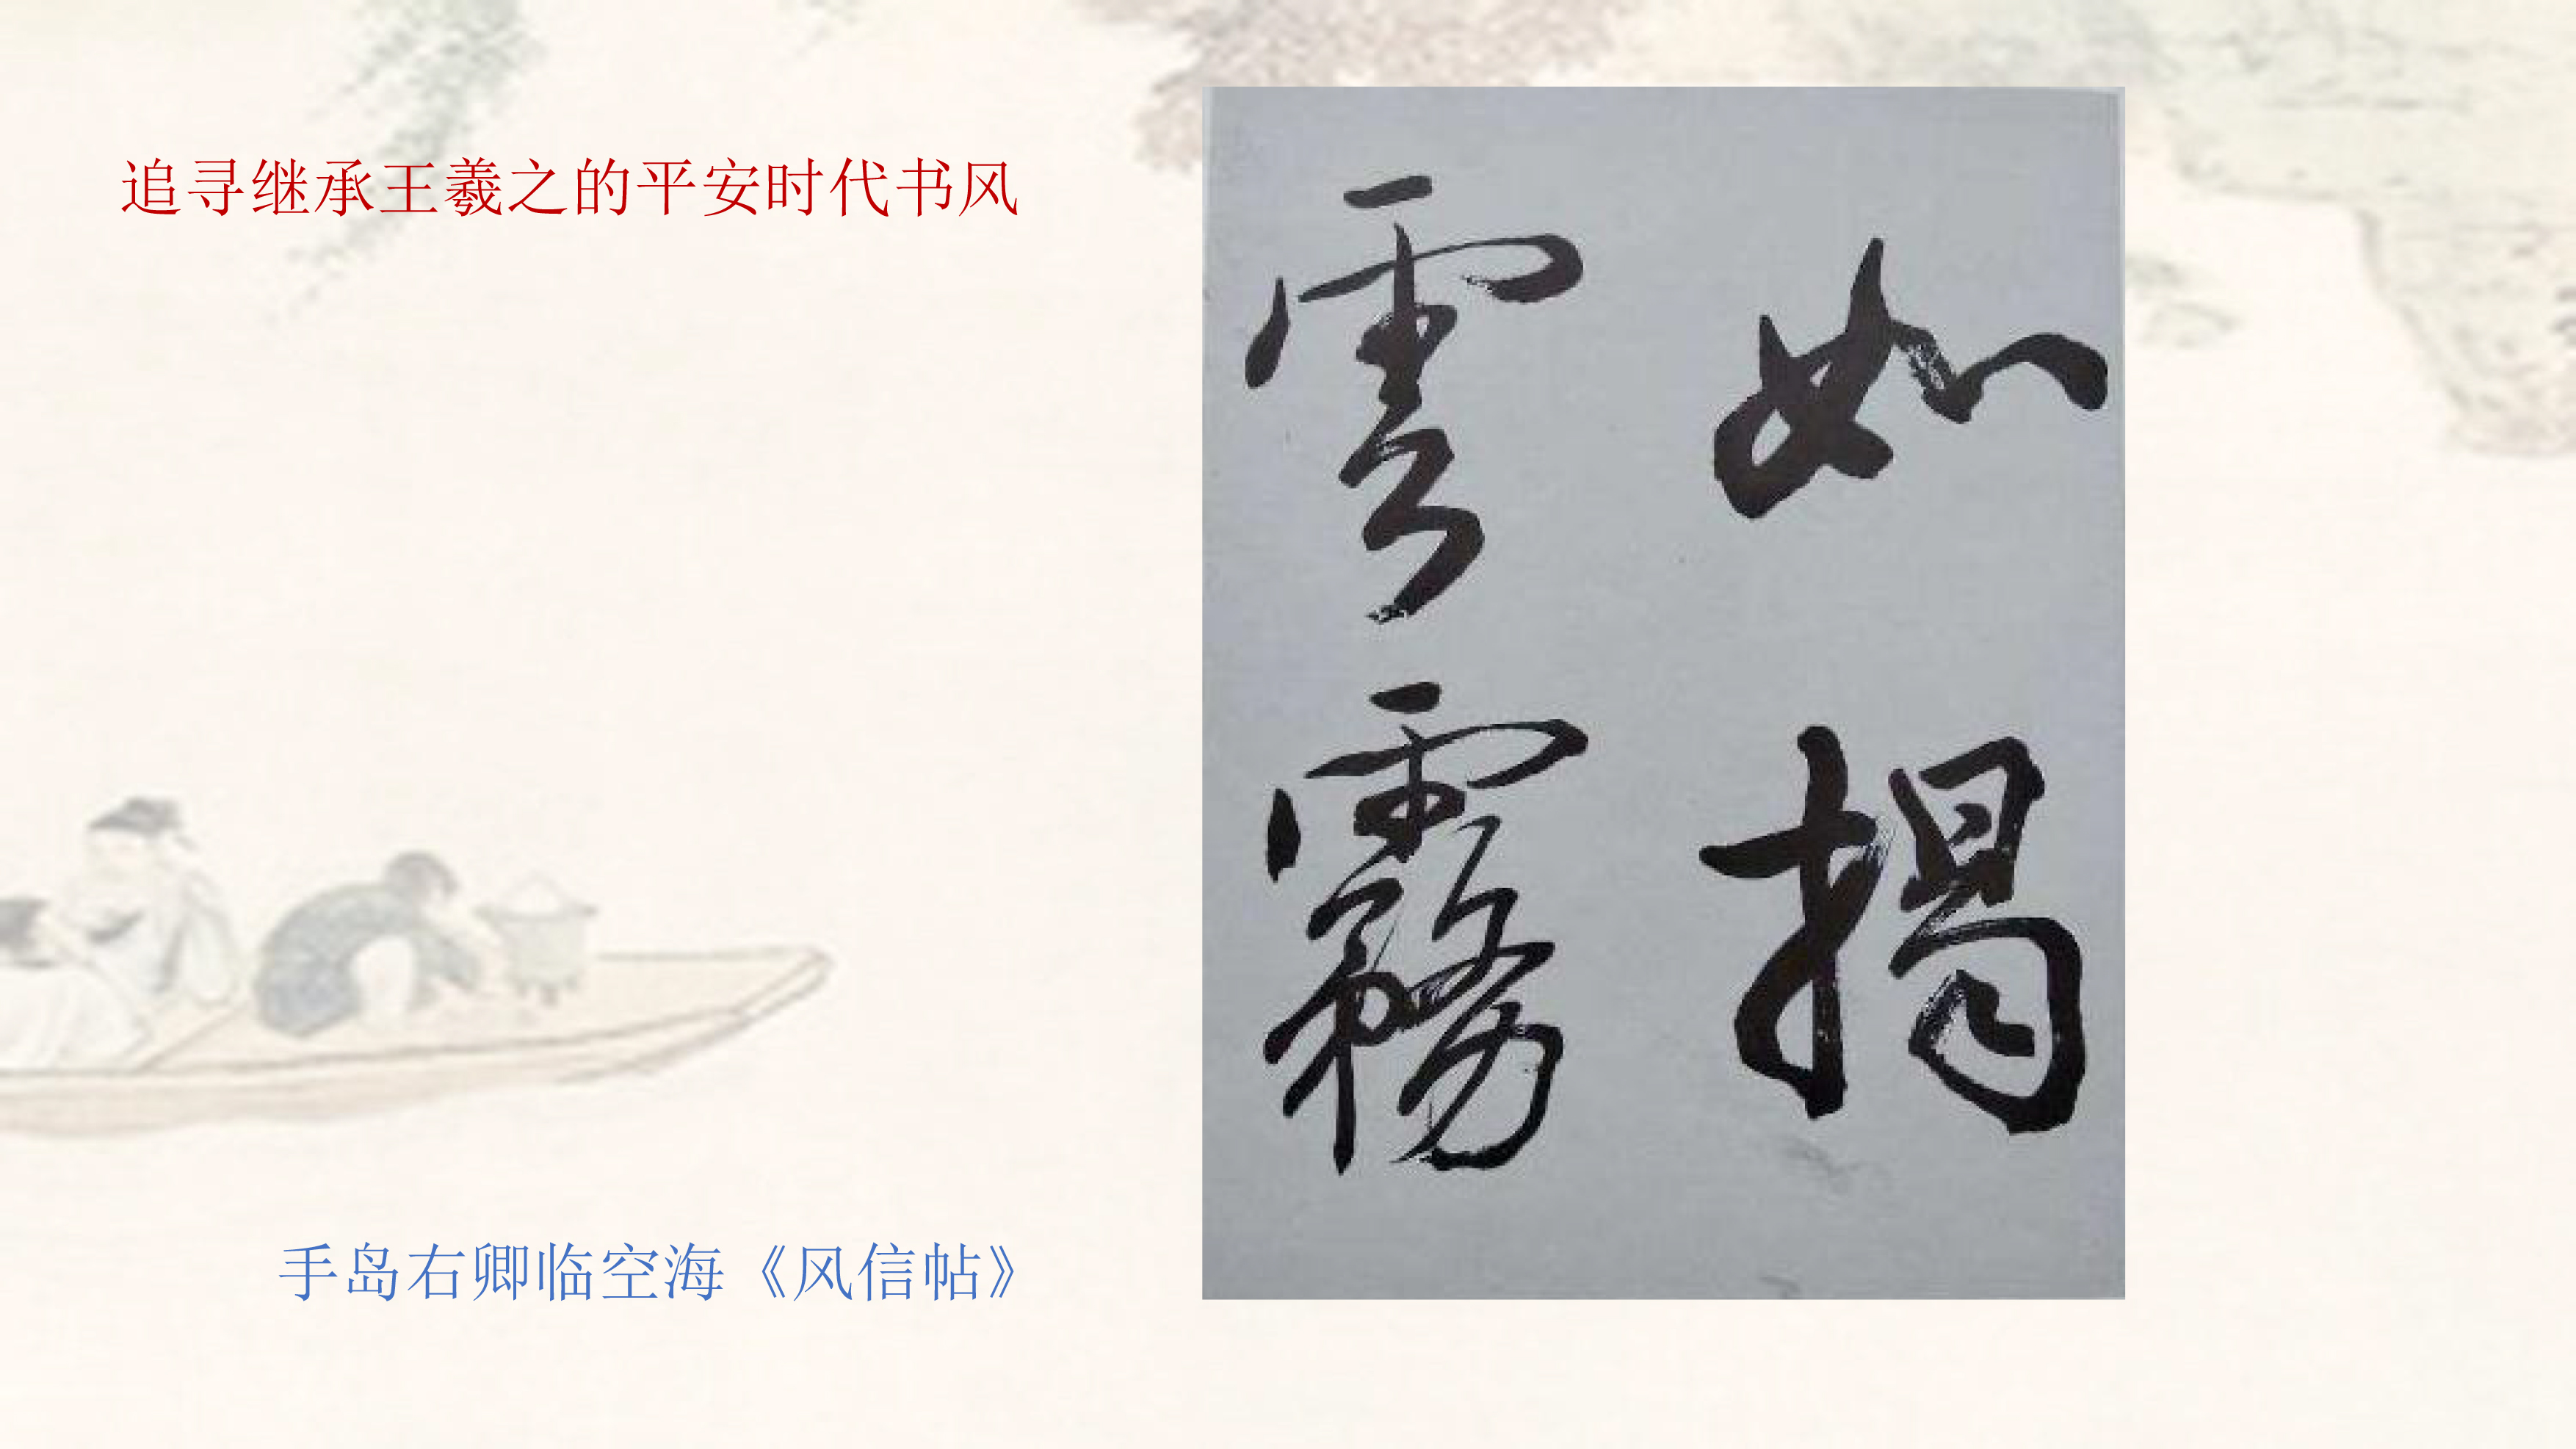 追寻继承王羲之的平安时代书风
如揭
雲霧
手岛右卿临空海《风信帖》